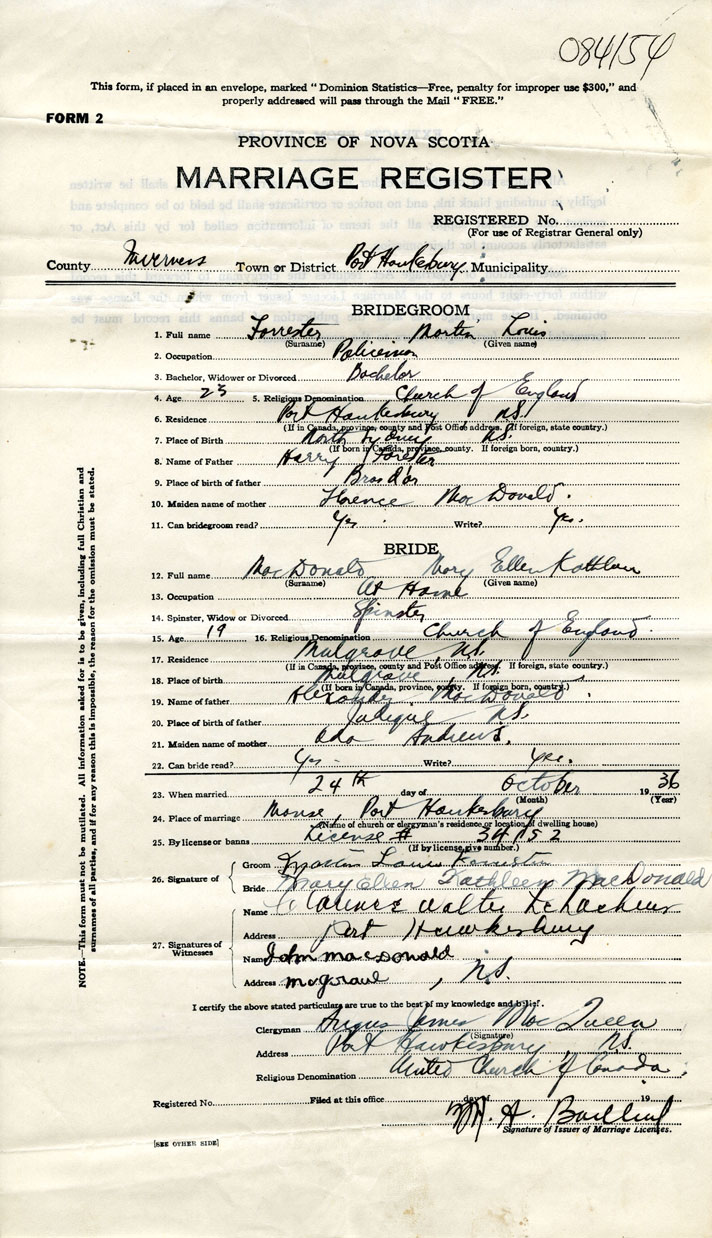 084154
This form, if placed in an envelope, marked "Dominion Statistics—Free, penalty for improper use $300," and
properly addressed will pass through the Mail "FREE."
FORM 2
PROVINCE OF NOVA SCOTIA
MARRIAGE REGISTER
REGISTERED No.
(For use of Registrar General only)
County Inverness Town or District Port Hawkesbury Municipality
BRIDEGROOM
1. Full name Forrester Martin Louis
(Surname) (Given name)
2. Occupation Policeman
3. Bachelor, Widower or Divorced Bachelor
4. Age 25 5. Religious Denomination Church of England
6. Residence Port Hawkesbury N.S.
(If in Canada, province, county and Post Office address. If foreign, state country.)
7. Place of Birth North Sydney N.S.
(If born in Canada, province, county. If foreign born, country.)
8. Name of Father Harry Forester
9. Place of birth of father Bras d'or
10. Maiden name of mother Florence MacDonald.
11. Can bridegroom read? Yes. Write? Yes.
BRIDE
12. Full name MacDonald Mary Ellen Kathleen
(Surname) (Given name)
13. Occupation At Home
14. Spinster, Widow or Divorced Spinster
15. Age 19 16. Religious Denomination Church of England.
17. Residence Mulgrave, N.S.
(If in Canada, province, county and Post Office address. If foreign, state country.)
18. Place of birth Mulgrave N.S.
(If born in Canada, province, county. If foreign born, country.)
19. Name of father Alexander MacDonald.
20. Place of birth of father Judique N.S.
21. Maiden name of mother Ada Andrews.
22. Can bride read? Yes. Write? Yes.
23. When married 24th day of October 1936
(Month) (Year)
24. Place of marriage Manse, Port Hawkesbury
(Name of church or clergyman's residence, or location of dwelling house)
25. By license or banns License #
(If by license, give number.)
26. Signature of Groom Martin Louis Forrester
Bride Mary Ellen Kathleen MacDonald
27. Signatures of Witnesses
Name Clarence Walter
Address Port Hawkesbury
Name John macdonald
Address , N.S.
I certify the above stated particulars are true to the best of my knowledge and belief.
Clergyman Angus James MacQueen
(Signature)
Address Port Hawkesbury, N.S.
Religious Denomination United Church of Canada.
Registered No. Filed at this office day of 19
M. A.
Signature of Issuer of Marriage Licenses.
[SEE OTHER SIDE]
NOTE.—This form must not be mutilated. All information asked for is to be given, including full Christian and
surnames of all parties, and if for any reason this is impossible, the reason for the omission must be stated.